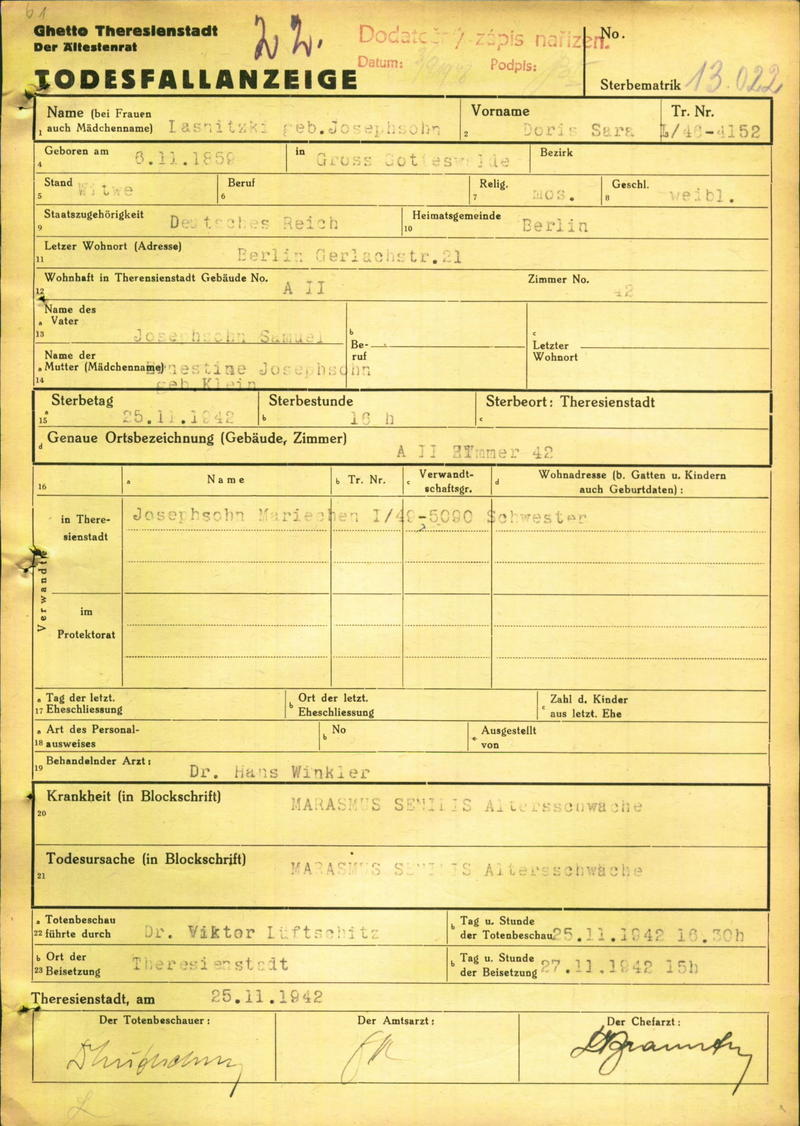 61
Ghetto Theresienstadt
Der Ältestenrat
22.
Dodateč ý zápis nařízen.
Datum:
Podpis:
No.
TODESFALLANZEIGE
Sterbematrik 13.022
Name (bei Frauen
1 auch Mädchenname) Lasnitzki geb.Josephsohn
Vorname
2 Doris Sara
Tr. Nr.
I/46-4152
Geboren am
4 6.11.1859
in Gross Gotteswalde
Bezirk
Stand
5 Witwe
Beruf
6
Relig.
7 mos.
Geschl.
8 weibl.
Staatszugehörigkeit
9 Deutsches Reich
Heimatsgemeinde
10 Berlin
Letzer Wohnort (Adresse)
11 Berlin Gerlachstr.21
Wohnhaft in Therensienstadt Gebäude No.
12 A II
Zimmer No.
42
Name des
a Vater
13 Josephsohn Samuel
b
Be-
ruf
c
Letzter
Wohnort
Name der
a Mutter (Mädchenname) Ernestine Josephsohn
14 geb.Klein
Sterbetag
15 a 25.11.1942
Sterbestunde
b 16 h
Sterbeort: Theresienstadt
c
d Genaue Ortsbezeichnung (Gebäude, Zimmer)
A II Zimmer 42
16
a Name
b Tr. Nr.
c Verwandt-
schaftsgr.
d Wohnadresse (b. Gatten u. Kindern
auch Geburtdaten) :
Verwandte
in There-
sienstadt
Josephsohn Mariechen I/46-5090 Schwester
im
Protektorat
a Tag der letzt.
17 Eheschliessung
b Ort der letzt.
Eheschliessung
c Zahl d. Kinder
aus letzt. Ehe
a Art des Personal-
18 ausweises
b No
c Ausgestellt
von
19 Behandelnder Arzt:
Dr. Hans Winkler
Krankheit (in Blockschrift)
20
MARASMUS SENILIS Altersschwäche
Todesursache (in Blockschrift)
21
MARASMUS SENILIS Altersschwäche
a Totenbeschau
22 führte durch Dr. Viktor Lüftschitz
b Tag u. Stunde
der Totenbeschau 25.11.1942 16.30h
b Ort der
23 Beisetzung Theresienstadt
b Tag u. Stunde
der Beisetzung 27.11.1942 15h
Theresienstadt, am 25.11.1942
Der Totenbeschauer:
Der Amtsarzt:
Der Chefarzt: